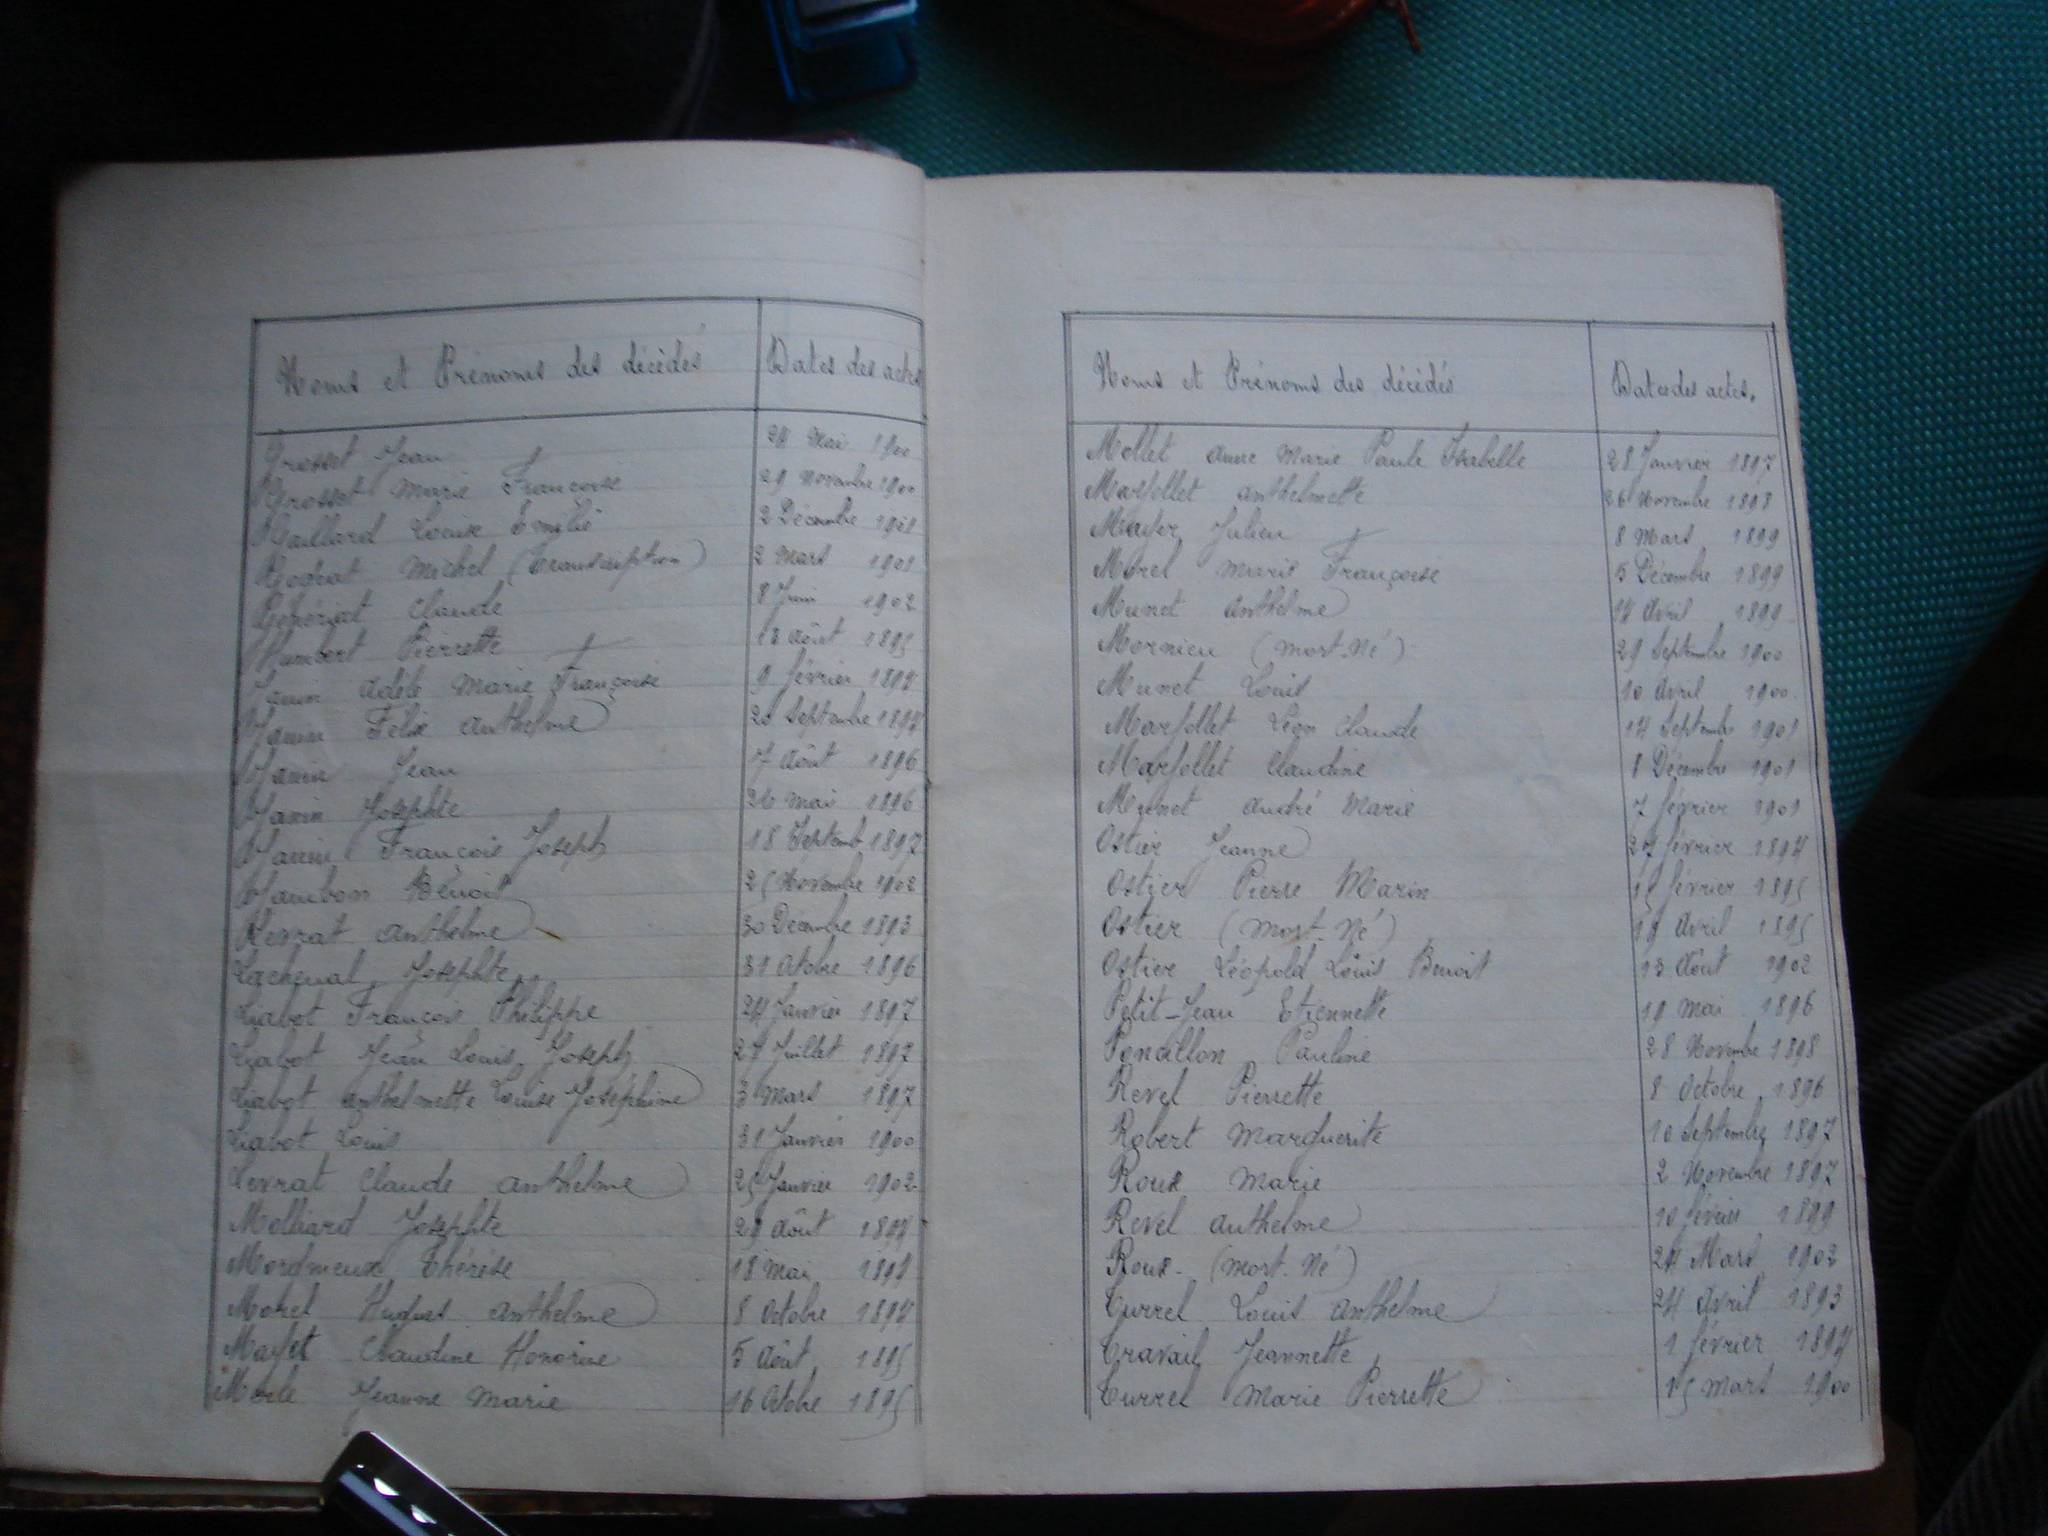 Noms et Prénoms des décédés Dates des actes
Grosset Jean 24 Mai 1900
Grosset Marie Françoise 29 Novembre 1900
Gaillard Louise Emilie 2 Décembre 1901
Michel (Transcription) 2 Mars 1901
Claude 8 Juin 1902
Humbert Pierrette Août 1895
Janin Adèle Marie Françoise 9 février
Janin Félix Anthelme Septembre 1894
Janin Jean 7 Août 1896
Janin Josephte 26 Mai 1896
Janin François Joseph 18 Septemb 1897
Jambon Benoit 25 Novembre 1902
Anthelme 30 Décembre 1893
Lacheval Josephte 31 Octobre 1896
Liabot François Philippe 24 Janvier 1897
Liabot Jean Louis Joseph 27 Juillet 1897
Liabot Anthelmette Louise Joséphine 3 Mars 1897
Liabot Louis 31 Janvier 1900
Levrat Claude Anthelme 25 Janvier 1902
Molliard Josephte 29 Août 1894
Thérèse 18 Mai
Morel Hugues Anthelme 8 Octobre 1894
Claudine Honorine 5 Août 1895
Merle Jeanne Marie 16 Octobre 1895
Noms et Prénoms des décédés Dates des actes.
Mollet Anne Marie Paule Isabelle 28 Janvier 1897
Marjollet Anthelmette 26 Novembre 1898
Mayer Julien 8 Mars 1899
Morel Marie Françoise 5 Décembre 1899
Munet Anthelme 14 Avril 1899
Mornieu (Mort-Né) 29 Septembre 1900
Munet Louis 10 Avril 1900
Marjollet Léon Claude 14 Septembre 1901
Marjollet Claudine 8 Décembre 1901
Munet André Marie 7 février 1901
Ostier Jeanne 27 février 1894
Ostier Pierre Marin 15 février 1895
Ostier (Mort-Né) 19 Avril 1895
Ostier Léopold Louis Benoit 13 Août 1902
Petit-Jean Etiennette 19 Mai 1896
Poncillon Pauline 28 Novembre 1898
Revel Pierrette 8 Octobre 1896
Robert Marguerite 10 Septembre 1897
Roux Marie 2 Novembre 1897
Revel Anthelme 10 février 1899
Roux (Mort-Né) 24 Mars 1902
Turrel Louis Anthelme 24 Avril 1893
Travail Jeannette 1 février 1894
Turrel Marie Pierrette 15 Mars 1900